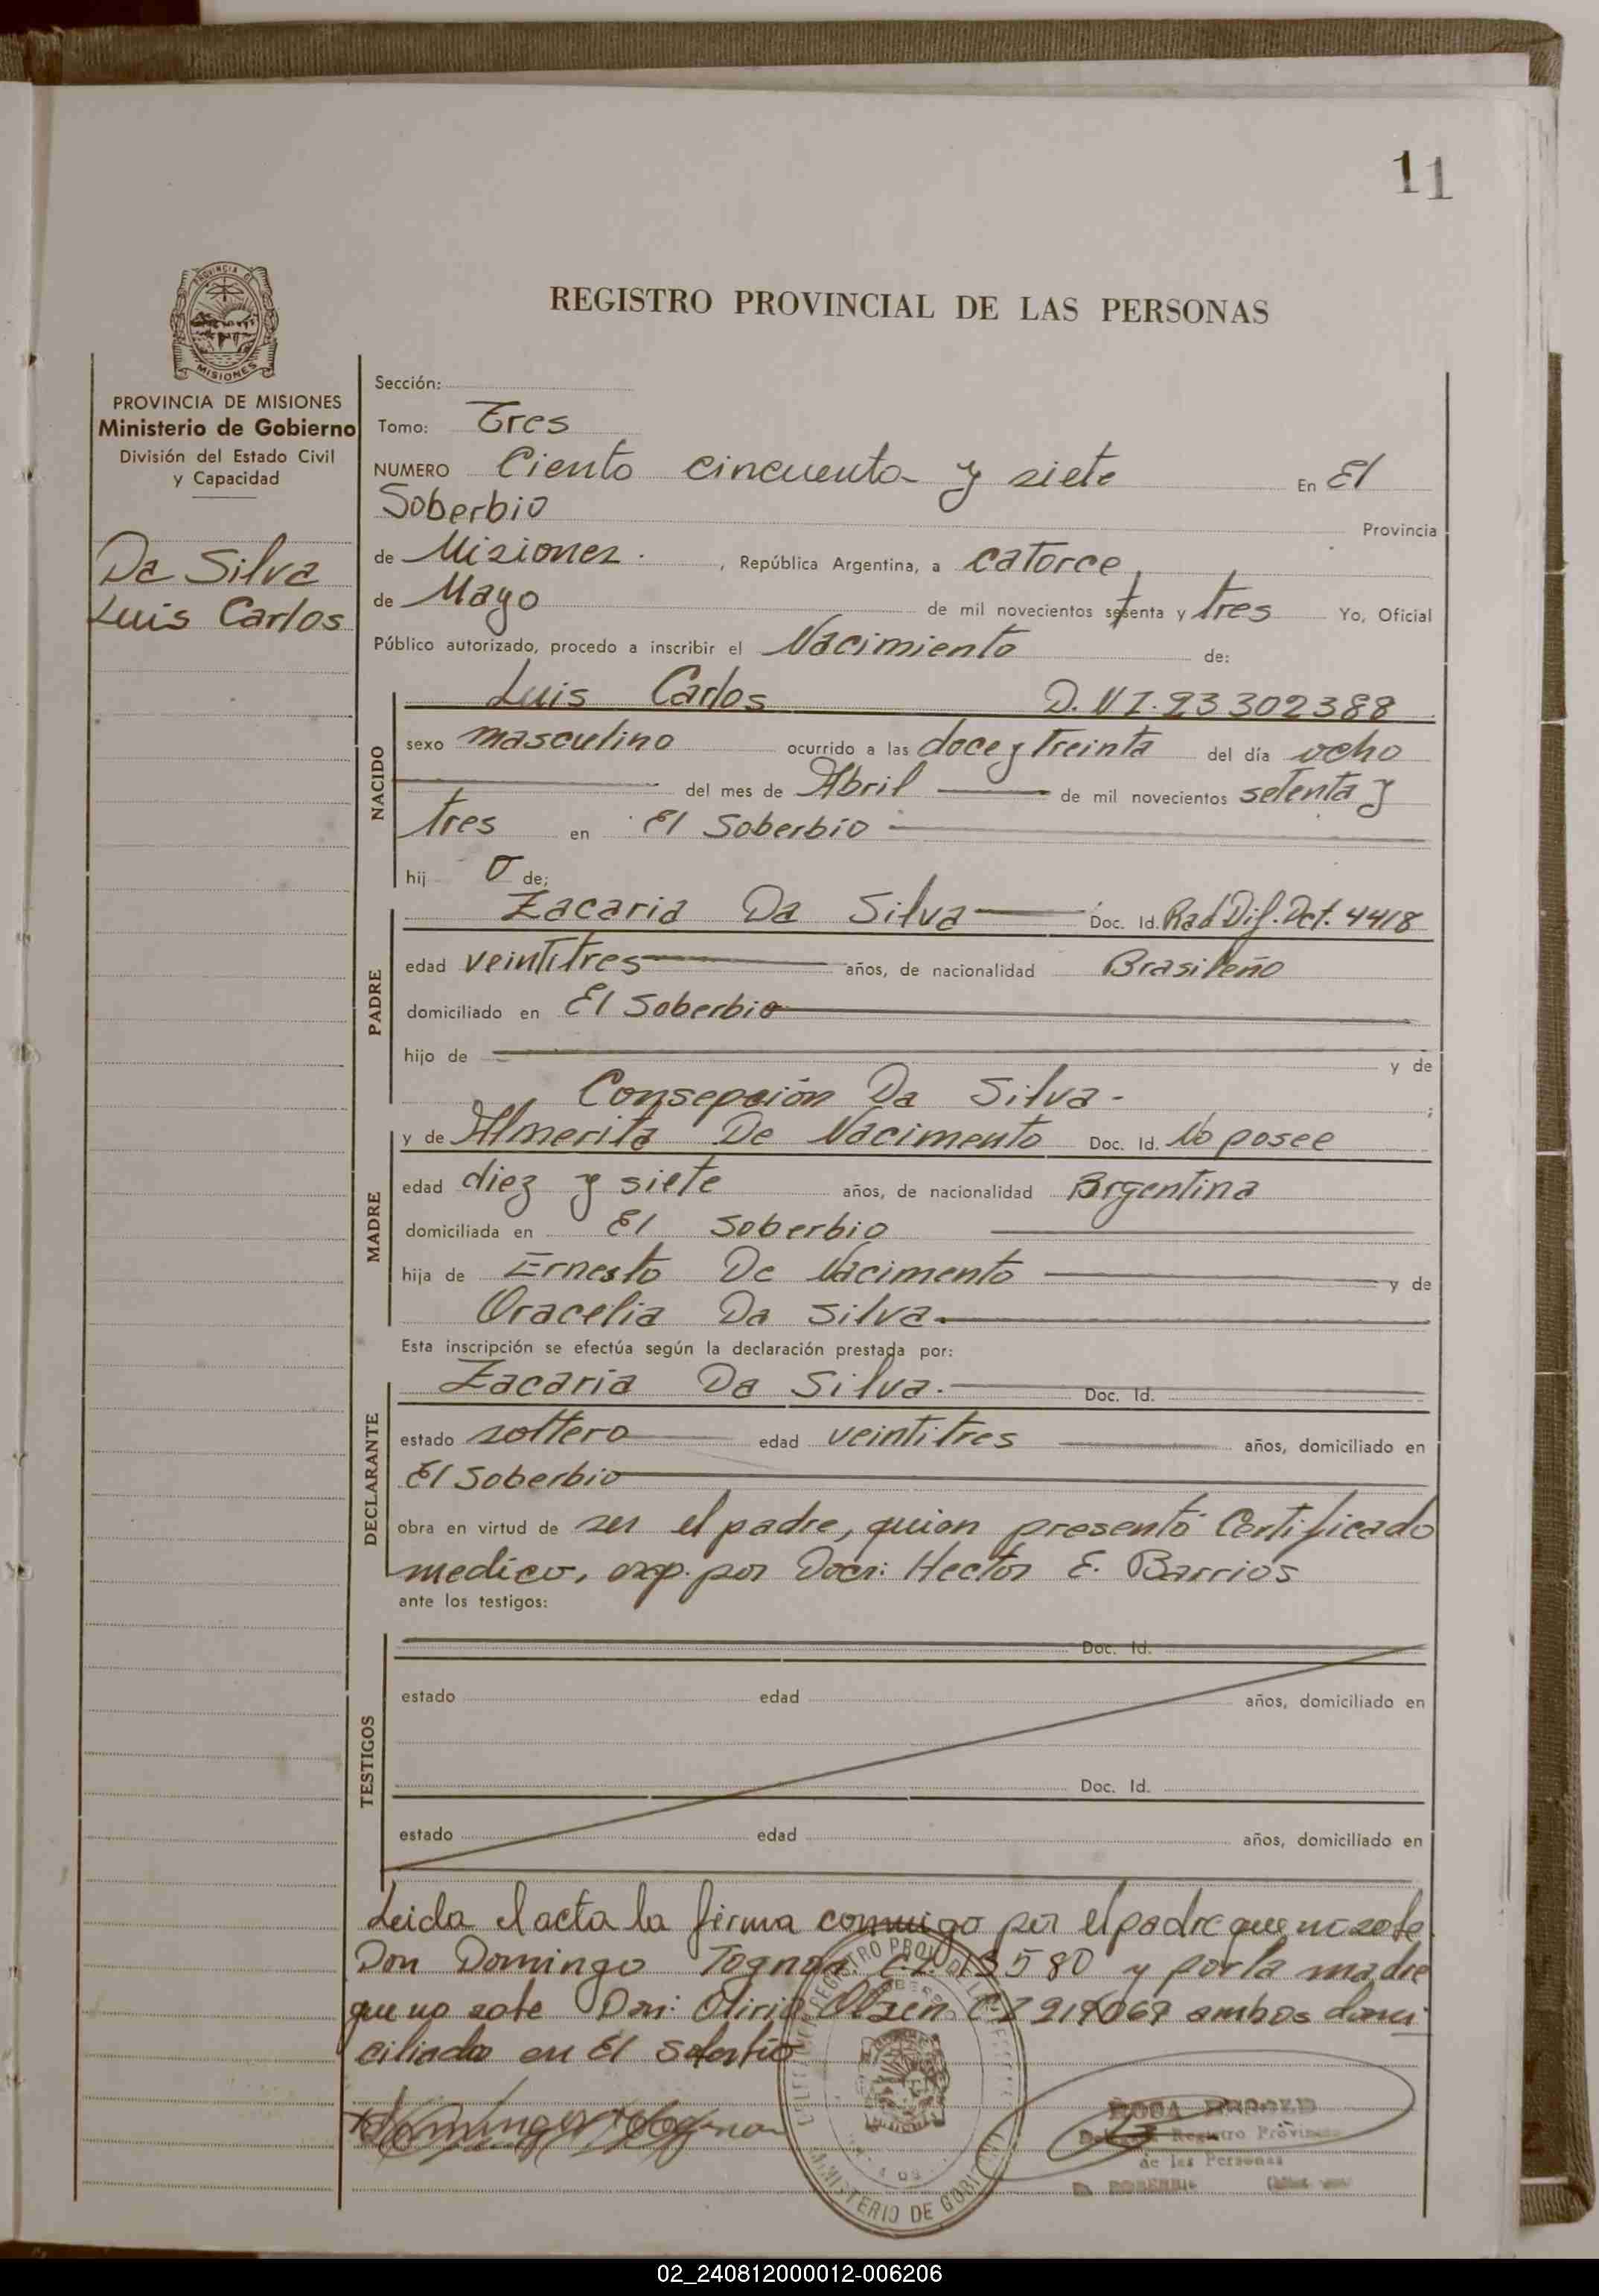 11
PROVINCIA DE
MISIONES
REGISTRO PROVINCIAL DE LAS PERSONAS
PROVINCIA DE MISIONES
Ministerio de Gobierno
División del Estado Civil
y Capacidad
Da Silva
Luis Carlos
Sección:
Tomo: Tres
NUMERO Ciento cincuenta y siete En El
Soberbio Provincia
de Misiones. , República Argentina, a catorce
de Mayo de mil novecientos setenta y tres Yo, Oficial
Público autorizado, procedo a inscribir el Nacimiento de:
NACIDO
Luis Carlos D.N.I. 23302388
sexo masculino ocurrido a las doce y treinta del día ocho
del mes de Abril de mil novecientos setenta y
tres en El Soberbio
hij o de;
PADRE
Zacaria Da Silva Doc. Id. Rad Dif. Det. 4418
edad veintitres años, de nacionalidad Brasileño
domiciliado en El Soberbio
hijo de y de
Consepción Da Silva - ;
MADRE
y de Almerita De Nacimento Doc. Id. No posee
edad diez y siete años, de nacionalidad Argentina
domiciliada en El Soberbio
hija de Ernesto De Nacimento y de
Oracelia Da Silva.
Esta inscripción se efectúa según la declaración prestada por:
DECLARANTE
Zacaria Da Silva. Doc. Id.
estado soltero edad veintitres años, domiciliado en
El Soberbio
obra en virtud de ser el padre, quien presentó Certificado
medico, exp. por Doct: Hector E. Barrios
ante los testigos:
TESTIGOS
Doc. Id.
estado edad años, domiciliado en
Doc. Id.
estado edad años, domiciliado en
Leida el acta la firma conmigo por el padre que no sabe
Don Domingo Tognon C.I. 13580 y por la madre
que no sabe Don: Olirio Olsen C.I. ambos domi
ciliados en El Soberbio
Domingo Tognon
MINISTERIO DE GOBIERNO
Registro Provincial
de las Personas
02_240812000012-006206